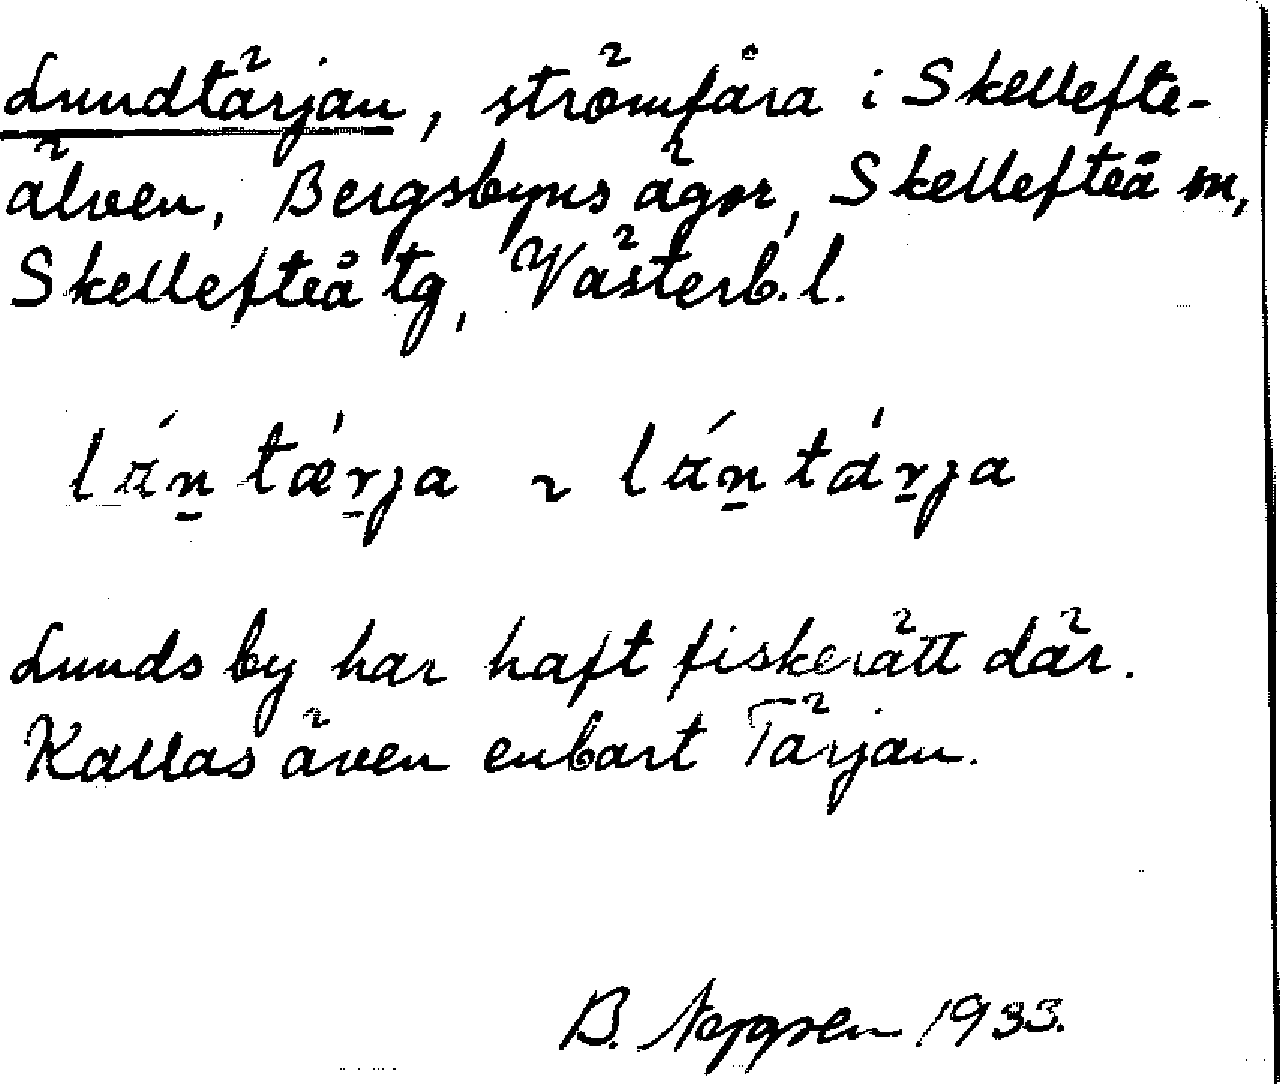 Lundtärjan, strömfåra i Skellefte-
älven, Bergsbyns ägor, Skellefteå m,
Skellefteå tg, Västerb. l.
lán̠ tǽr̠ja ~ lán̠ tár̠ja
Lunds by har haft fiskerätt där.
Kallas även enbart Tärjan.
B. 1933.